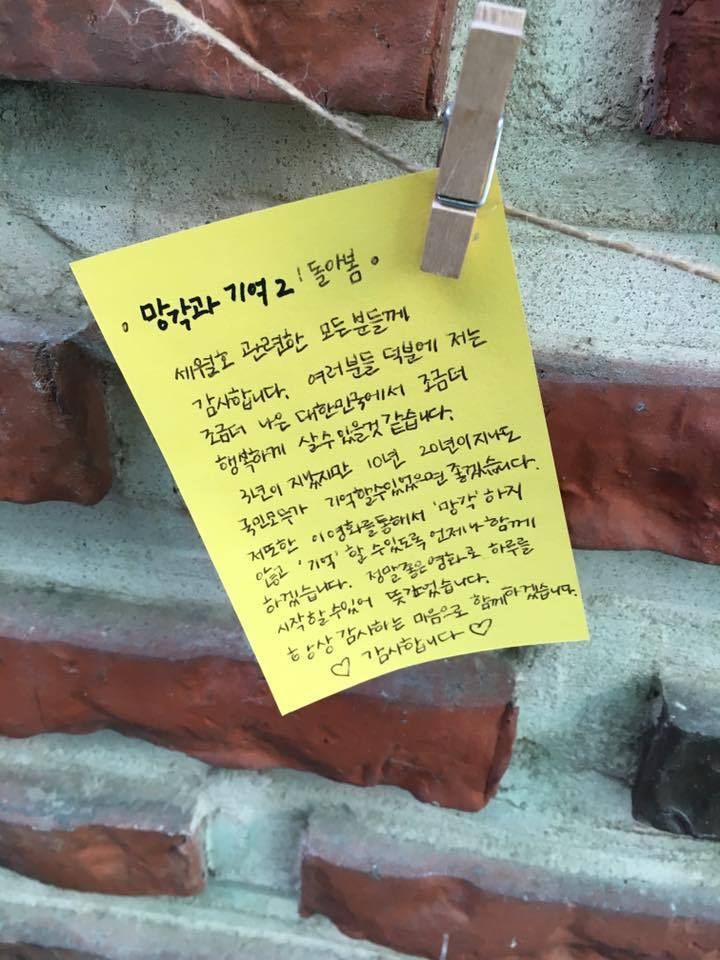 . 망각과 기억 2 : 돌아봄 .
세월호 관련한 모든분들께
감사합니다. 여러분들 덕분에 저는
조금더 나은 대한민국에서 조금더
행복하게 살수있을것 같습니다.
3년이 지났지만 10년 20년이지나도
국민모두가 기억할수있었으면 좋겠습니다.
저또한 이영화를통해서 '망각'하지
않고 '기억'할 수있도록 언제나함께
하겠습니다. 정말좋은영화로 하루를
시작할수있어 뜻깊었습니다.
항상감사하는 마음으로 함께하겠습니다.
♡ 감사합니다 ♡